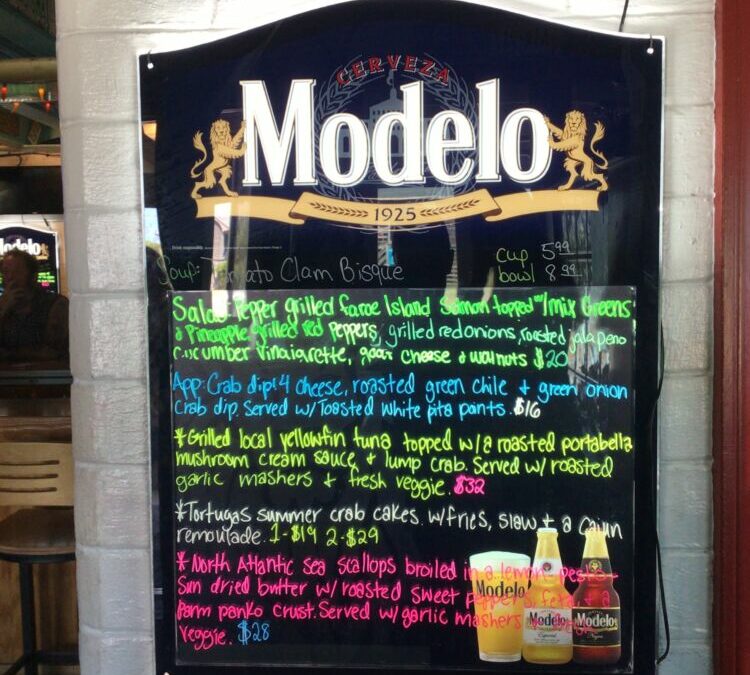 CERVEZA
Modelo
1925
Drink responsibly.
Soup: Tomato Clam Bisque cup 5.99
bowl 8.99
Salad: Pepper grilled faroe Island Salmon topped w/ mix Greens
& Pineapple, grilled red Peppers, grilled red onions, roasted jalapeno
cucumber vinaigrette, goat cheese & walnuts $20
App: Crab dip: 4 cheese, roasted green chile + green onion
Crab dip. Served w/ Toasted White pita points. $16
*Grilled local yellowfin tuna topped w/ a roasted portabella
mushroom cream sauce + lump crab. Served w/ roasted
garlic mashers + fresh veggie. $32
*Tortugas summer crab cakes. w/fries, slaw + a Cajun
remoulade. 1-$19 2-$29
*North Atlantic sea scallops broiled in a lemon pesto
Sun dried butter w/ roasted sweet peppers, feta + a
Parm panko crust. Served w/ garlic mashers +
Veggie. $28
Modelo
Modelo
Especial
Modelo
Negra
Modelo